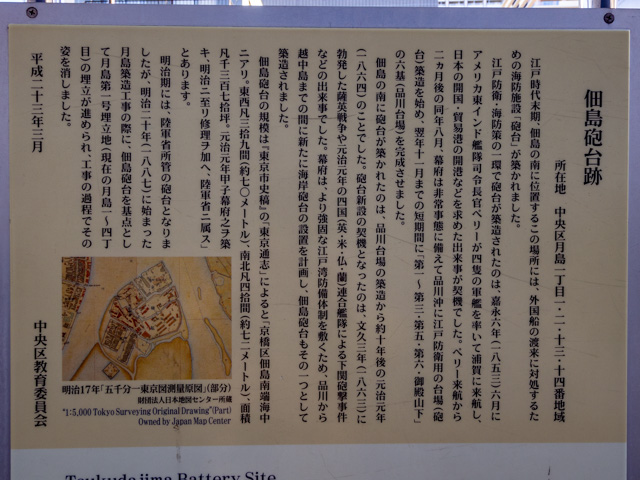 佃島砲台跡
所在地　中央区月島一丁目一・二・十三・十四番地域
江戸時代末期、佃島の南に位置するこの場所には、外国船の渡来に対処するた
めの海防施設「砲台」が築かれました。
江戸防衛、海防策の一環で砲台が築造されたのは、嘉永六年（一八五三）六月に
アメリカ東インド艦隊司令長官ペリーが四隻の軍艦を率いて浦賀に来航し、
日本の開国・貿易港の開港などを求めた出来事が契機でした。ペリー来航から
二ヵ月後の同年八月、幕府は非常事態に備えて品川沖に江戸防衛用の台場（砲
台）築造を始め、翌年十一月までの短期間に「第一～第三・第五・第六・御殿山下」
の六基（品川台場）を完成させました。
佃島の南に砲台が築かれたのは、品川台場の築造から約十年後の元治元年
（一八六四）のことでした。砲台新設の契機となったのは、文久三年（一八六三）に
勃発した薩英戦争や元治元年の四国（英・米・仏・蘭）連合艦隊による下関砲撃事件
などの出来事でした。幕府は、より強固な江戸湾防備体制を敷くため、品川から
越中島までの間に新たに海岸砲台の設置を計画し、佃島砲台もその一つとして
築造されました。
佃島砲台の規模は『東京市史稿』の「東京通志」によると「京橋区佃島南端海中
ニアリ。東西凡三拾九間（約七〇メートル）、南北凡四拾間（約七二メートル）、面積
凡千三百七拾坪。元治元年甲子幕府之ヲ築
キ、明治ニ至リ修理ヲ加ヘ、陸軍省ニ属ス」
とあります。
明治期には、陸軍省所管の砲台となりま
したが、明治二十年（一八八七）に始まった
月島築造工事の際に、佃島砲台を基点とし
て月島第一号埋立地（現在の月島一～四丁
目）の埋立が進められ、工事の過程でその
姿を消しました。
平成二十三年三月
中央区教育委員会
明治17年「五千分一東京図測量原図」（部分）
財団法人日本地図センター所蔵
"1:5,000 Tokyo Surveying Original Drawing"(Part)
Owned by Japan Map Center
Tsukudajima Battery Site